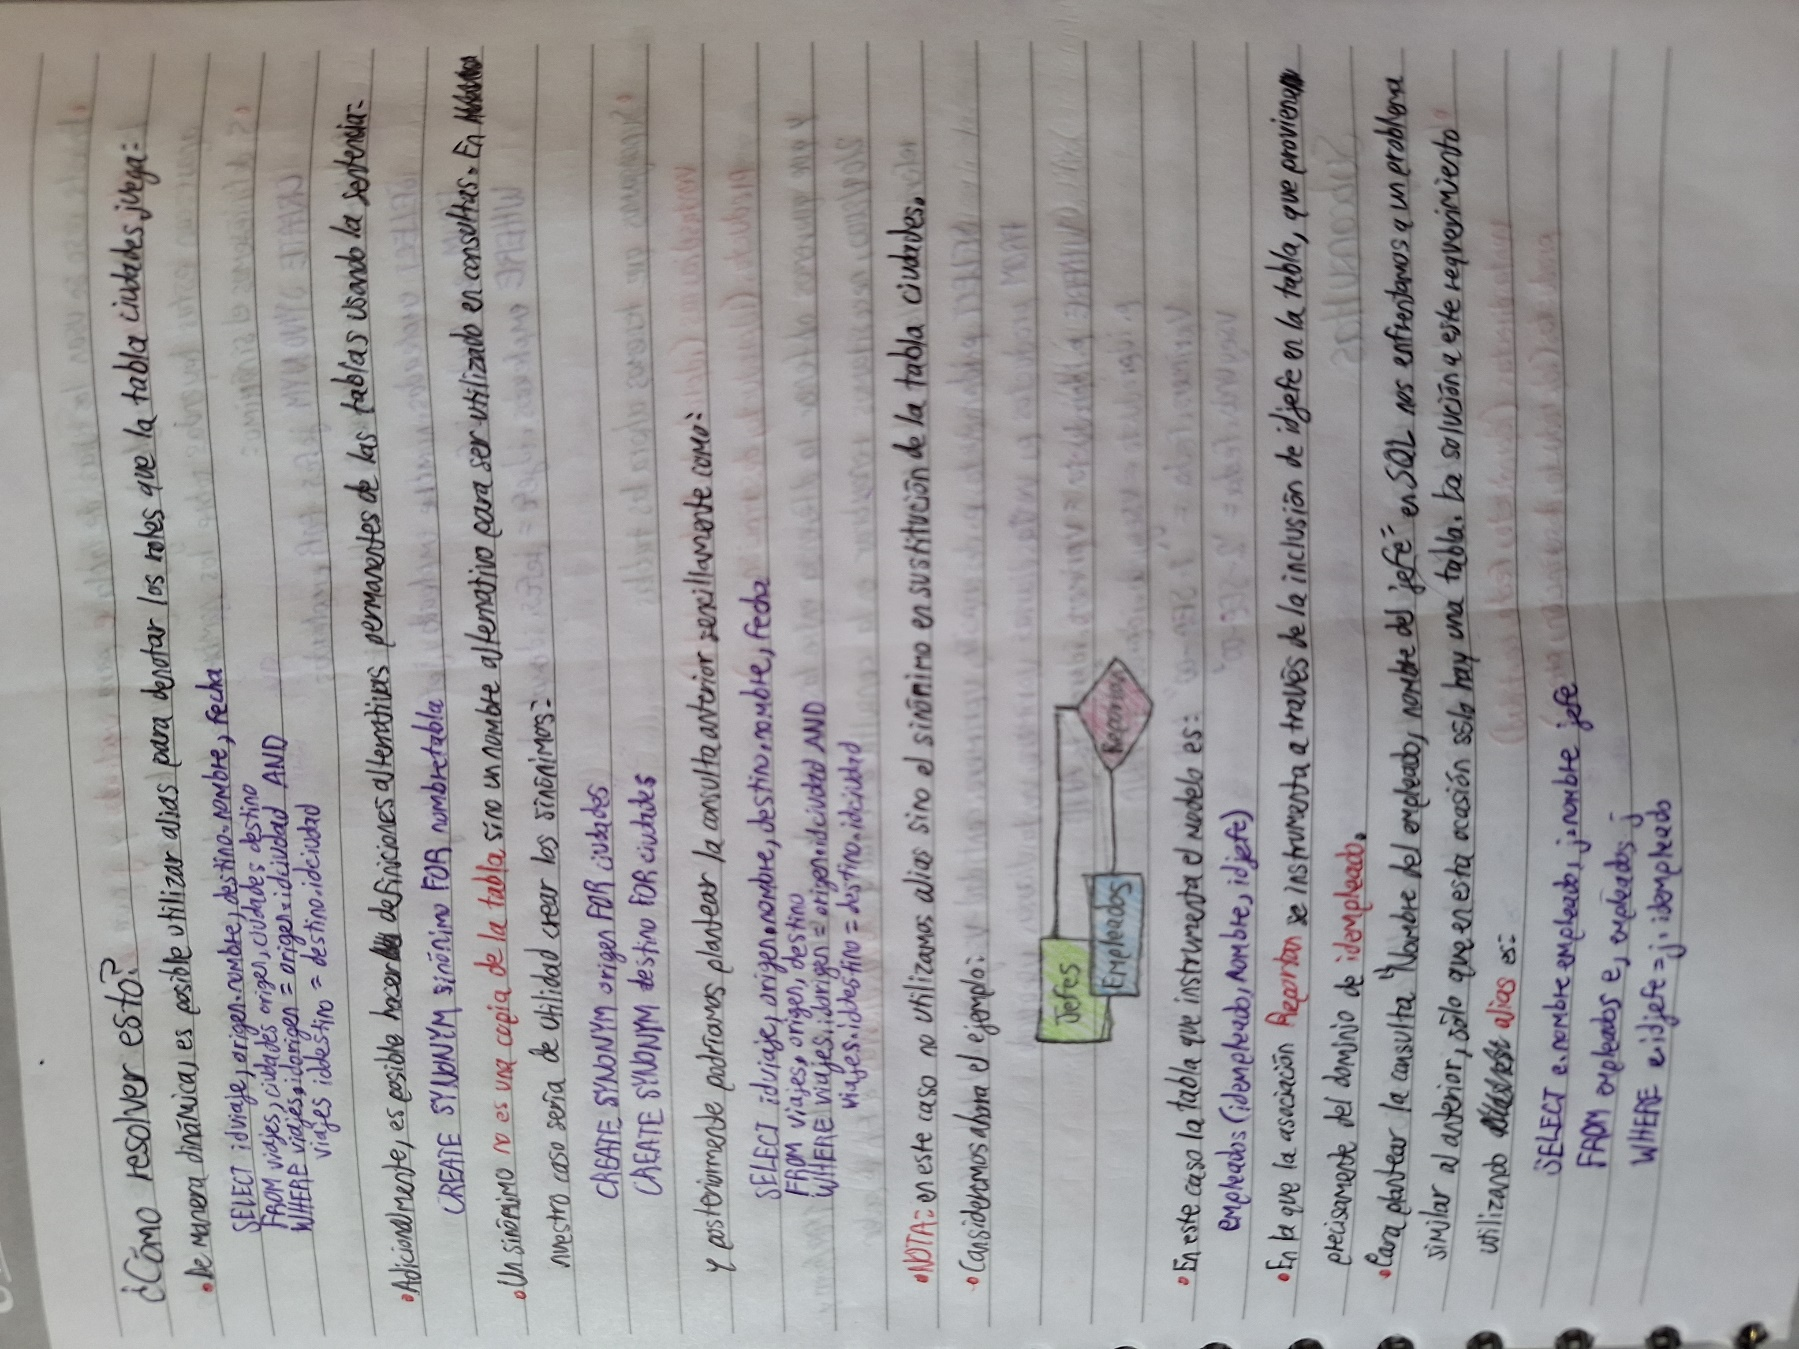 ¿Cómo resolver esto?
• De manera dinámica, es posible utilizar alias para denotar los roles que la tabla ciudades juega:
SELECT idviaje, origen.nombre, destino.nombre, fecha
FROM viajes, ciudades origen, ciudades destino
WHERE viajes.idorigen = origen.idciudad AND
viajes idestino = destino.idciudad
• Adicionalmente, es posible hacer definiciones alternativas permanentes de las tablas usando la sentencia:
CREATE SYNONYM sinónimo FOR nombretabla
• Un sinónimo no es una copia de la tabla sino un nombre alternativo para ser utilizado en consultas. En
nuestro caso sería de utilidad crear los sinónimos:
CREATE SYNONYM origen FOR ciudades
CREATE SYNONYM destino FOR ciudades
y posteriormente podríamos plantear la consulta anterior sencillamente como:
SELECT idviaje, origen.nombre, destino.nombre, fecha
FROM viajes, origen, destino
WHERE viajes.idorigen = origen.idciudad AND
viajes.idestino = destino.idciudad
• NOTA: en este caso no utilizamos alias sino el sinónimo en sustitución de la tabla ciudades.
• Consideremos ahora el ejemplo:
Jefes
Empleados
Reportan
• En este caso la tabla que instrumenta el modelo es:
empleados (idempleado, nombre, idjefe)
• En la que la asociación Reportan se instrumenta a través de la inclusión de idjefe en la tabla, que proviene
precisamente del dominio de idempleado.
• Para plantear la consulta "Nombre del empleado, nombre del jefe" en SQL nos enfrentamos a un problema
similar al anterior, sólo que en esta ocasión sólo hay una tabla. La solución a este requerimiento
utilizando alias es:
SELECT e.nombre empleado, j.nombre jefe
FROM empleados e, empleados j
WHERE e.idjefe = j.idempleado